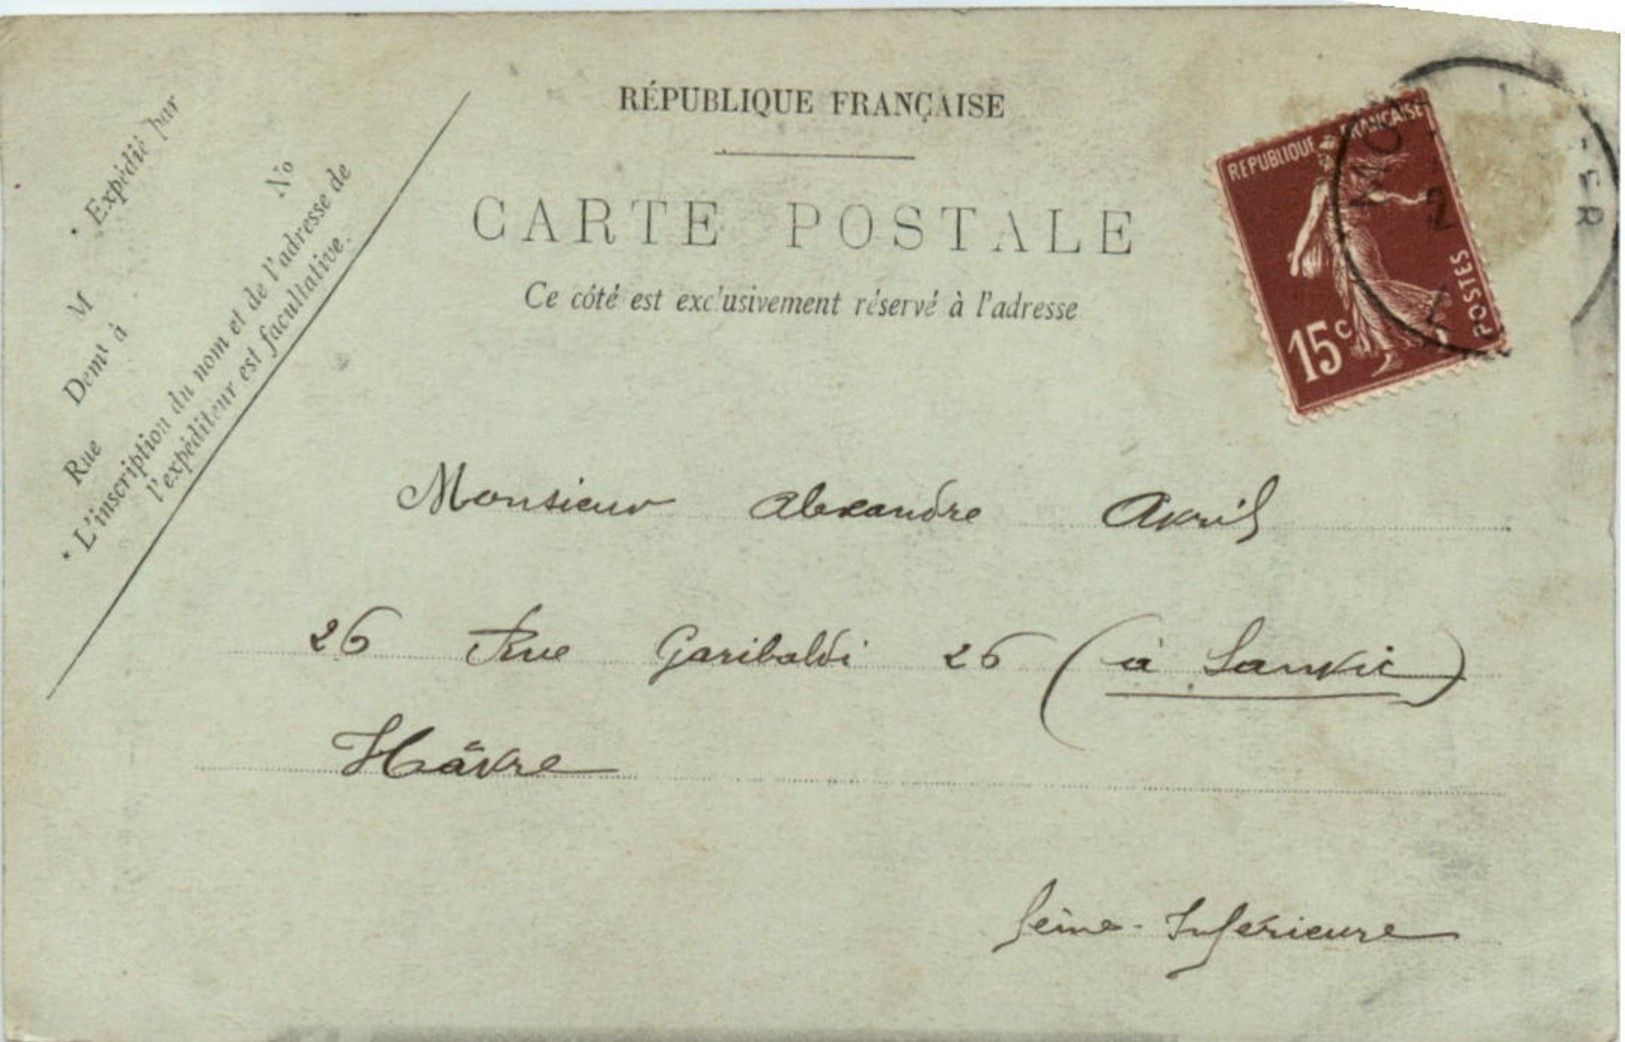 RÉPUBLIQUE FRANÇAISE
CARTE POSTALE
Ce côté est exclusivement réservé à l'adresse
Expédié par
M
Demt à
Rue
No
L'inscription du nom et de l'adresse de
l'expéditeur est facultative.
RÉPUBLIQUE FRANÇAISE
POSTES
15c
Monsieur Alexandre Avril
26 Rue Garibaldi 26 (à Sanvic)
Hâvre
Seine-Inférieure